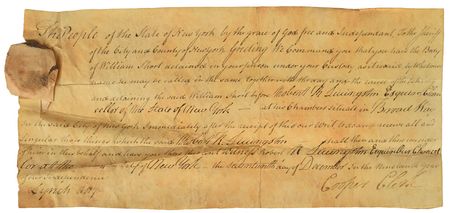 The People of the State of New York by the grace of God free and Independant To the Sheriff
of the City and County of New York Greeting We Command you that you have the Body
of William Short detained in your prison under your Custody as it is said
name he may be called in the same together with the day and the cause of the
and detaining the said William Short before Robert R Livingston Esquire Chan
cellor of our State of New York at his Chambers situate in Broad Way
in the said City of New York Immediately after the receipt of this our Writ to and receive all and
Singular those things which the said Robert R Livingston shall then and there
him in this behalf and have you then there this Writ Witness Robert R Livingston Esquire our Chancel
lor at the City of New York the seventeenth day of December in the year
of our Independence
Lynch Atty
Cooper Clerk